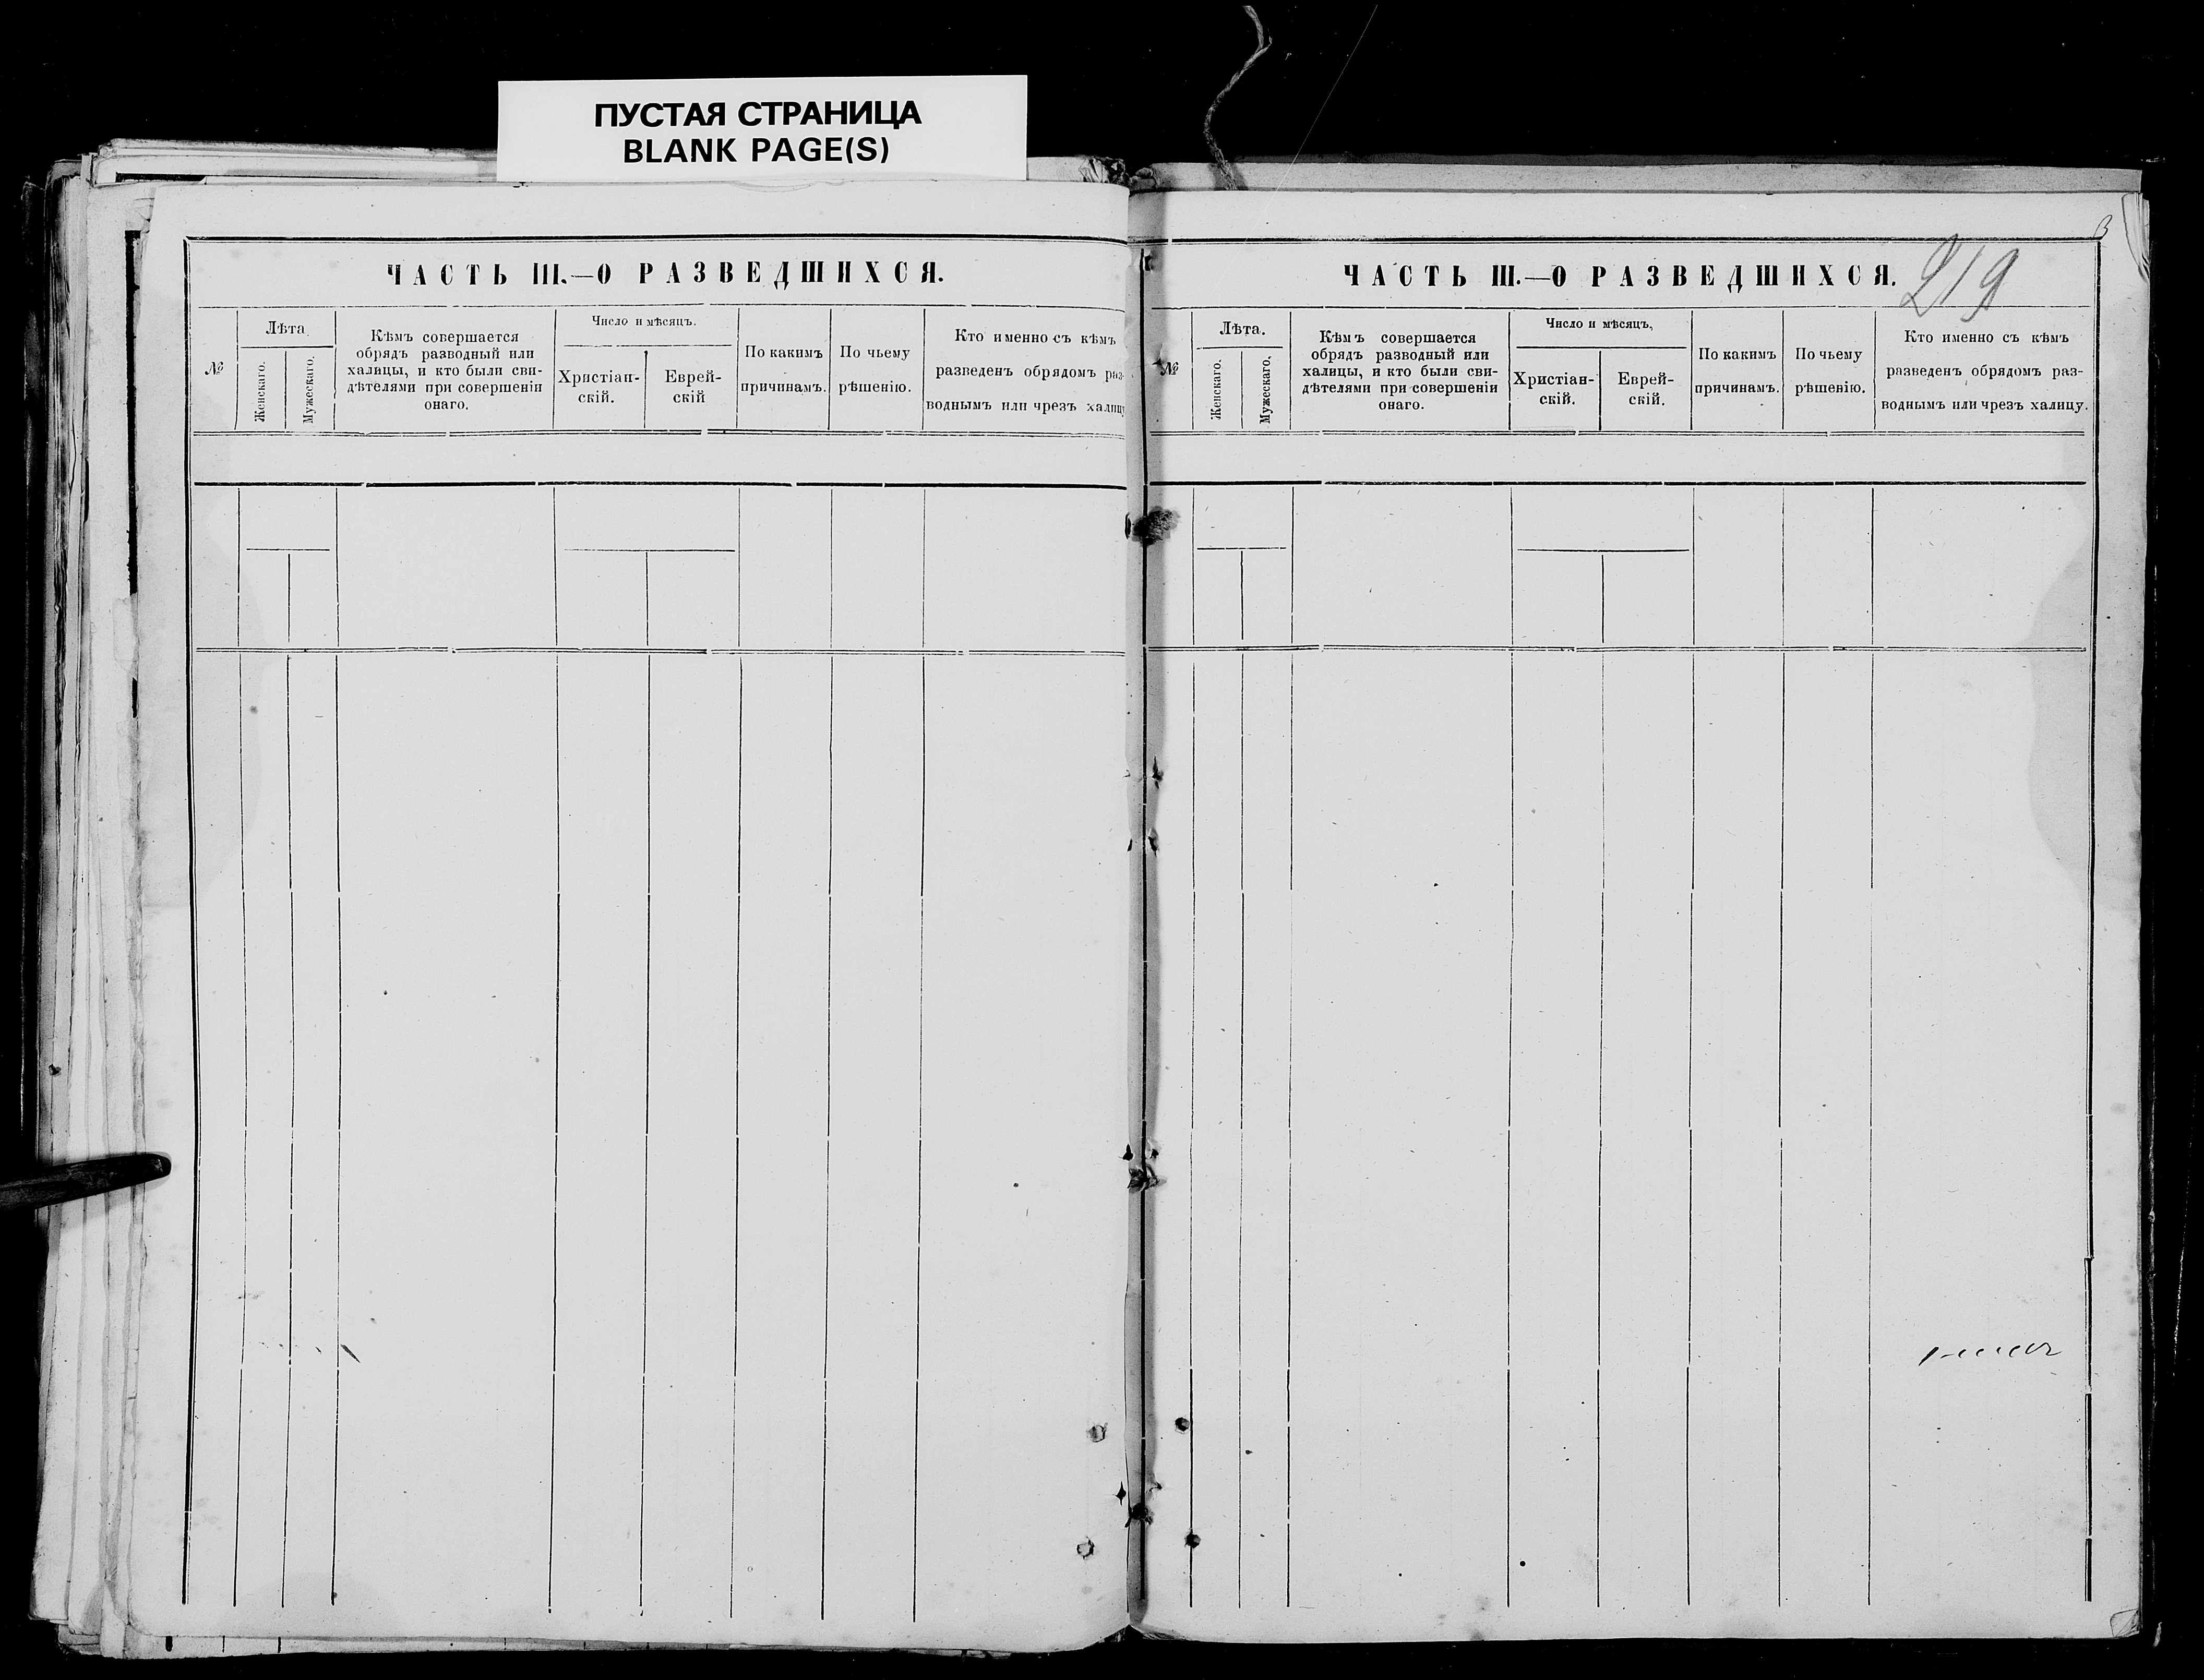 ПУСТАЯ СТРАНИЦА
BLANK PAGE(S)
ЧАСТЬ III.—О РАЗВЕДШИХСЯ.
№
Лѣта
Женскаго.
Мужескаго.
Кѣмъ совершается
обрядъ разводный или
халицы, и кто были сви-
дѣтелями при совершеніи
онаго.
Число и мѣсяцъ.
Христіан-
скій.
Еврей-
скій
По какимъ
причинамъ.
По чьему
рѣшенію.
Кто именно съ кѣмъ
разведенъ обрядомъ раз-
воднымъ или чрезъ халицу
3
219
ЧАСТЬ III.—О РАЗВЕДШИХСЯ.
№
Лѣта.
Женскаго.
Мужескаго.
Кѣмъ совершается
обрядъ разводный или
халицы, и кто были сви-
дѣтелями при совершеніи
онаго.
Число и мѣсяцъ.
Христіан-
скій.
Еврей-
скій.
По какимъ
причинамъ.
По чьему
рѣшенію.
Кто именно съ кѣмъ
разведенъ обрядомъ раз-
воднымъ или чрезъ халицу.